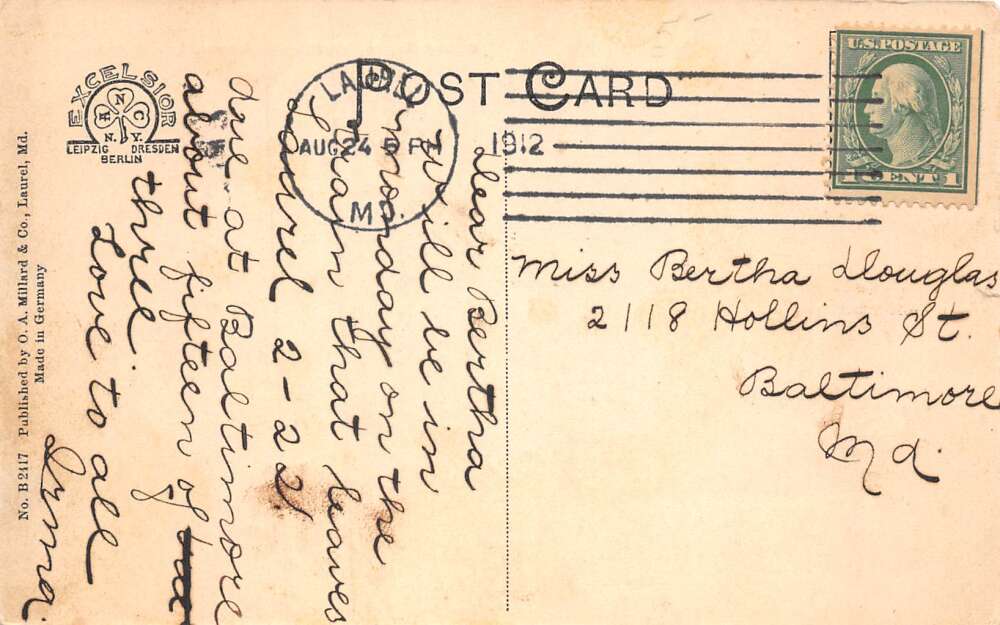 POST CARD
U.S. POSTAGE
CENT 1
LAUREL
AUG 24 5 PM
1912
MD.
EXCELSIOR
N
N.Y.
LEIPZIG DRESDEN
BERLIN
Dear Bertha
Will be in
monday on the
train that leaves
Laurel 2-22
due at Baltimore
about fifteen of
three
Love to all
Irma.
Miss Bertha Douglas
2118 Hollins St.
Baltimore
Md.
No. B 2417 Published by O. A. Millard & Co., Laurel, Md.
Made in Germany